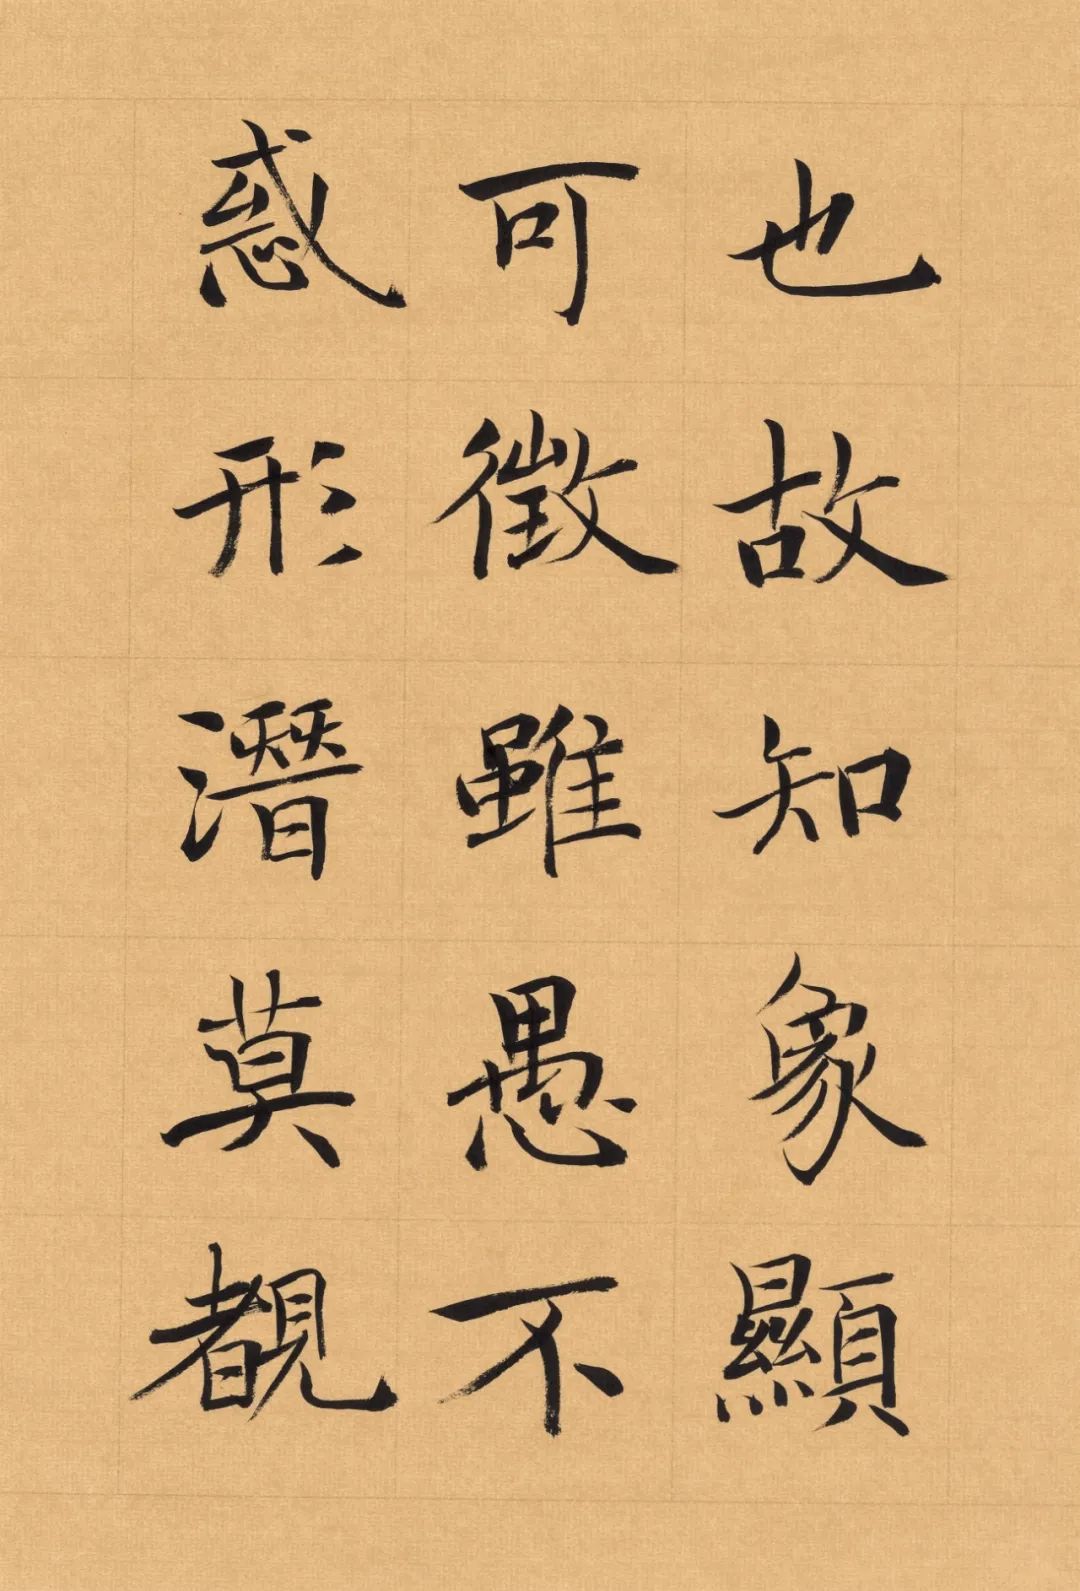 也故知象顯
可徵雖愚不
惑形潛莫覩